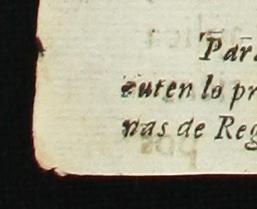 Para
cuten lo pr
nas de Reg